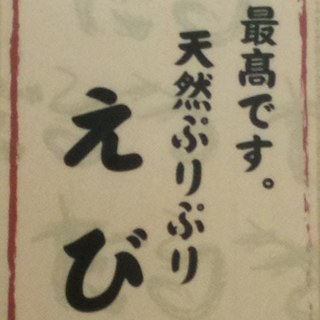 最高です。
天然ぷりぷり
えび